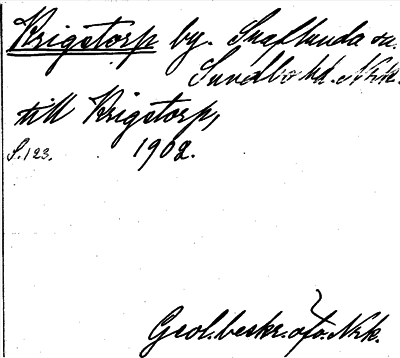 Krigstorp by. Snaflunda sn.
Sundbo hd. Nrk.
till Krigstorp,
S. 123. 1902.
Geol. beskr. ofv. Nrk.